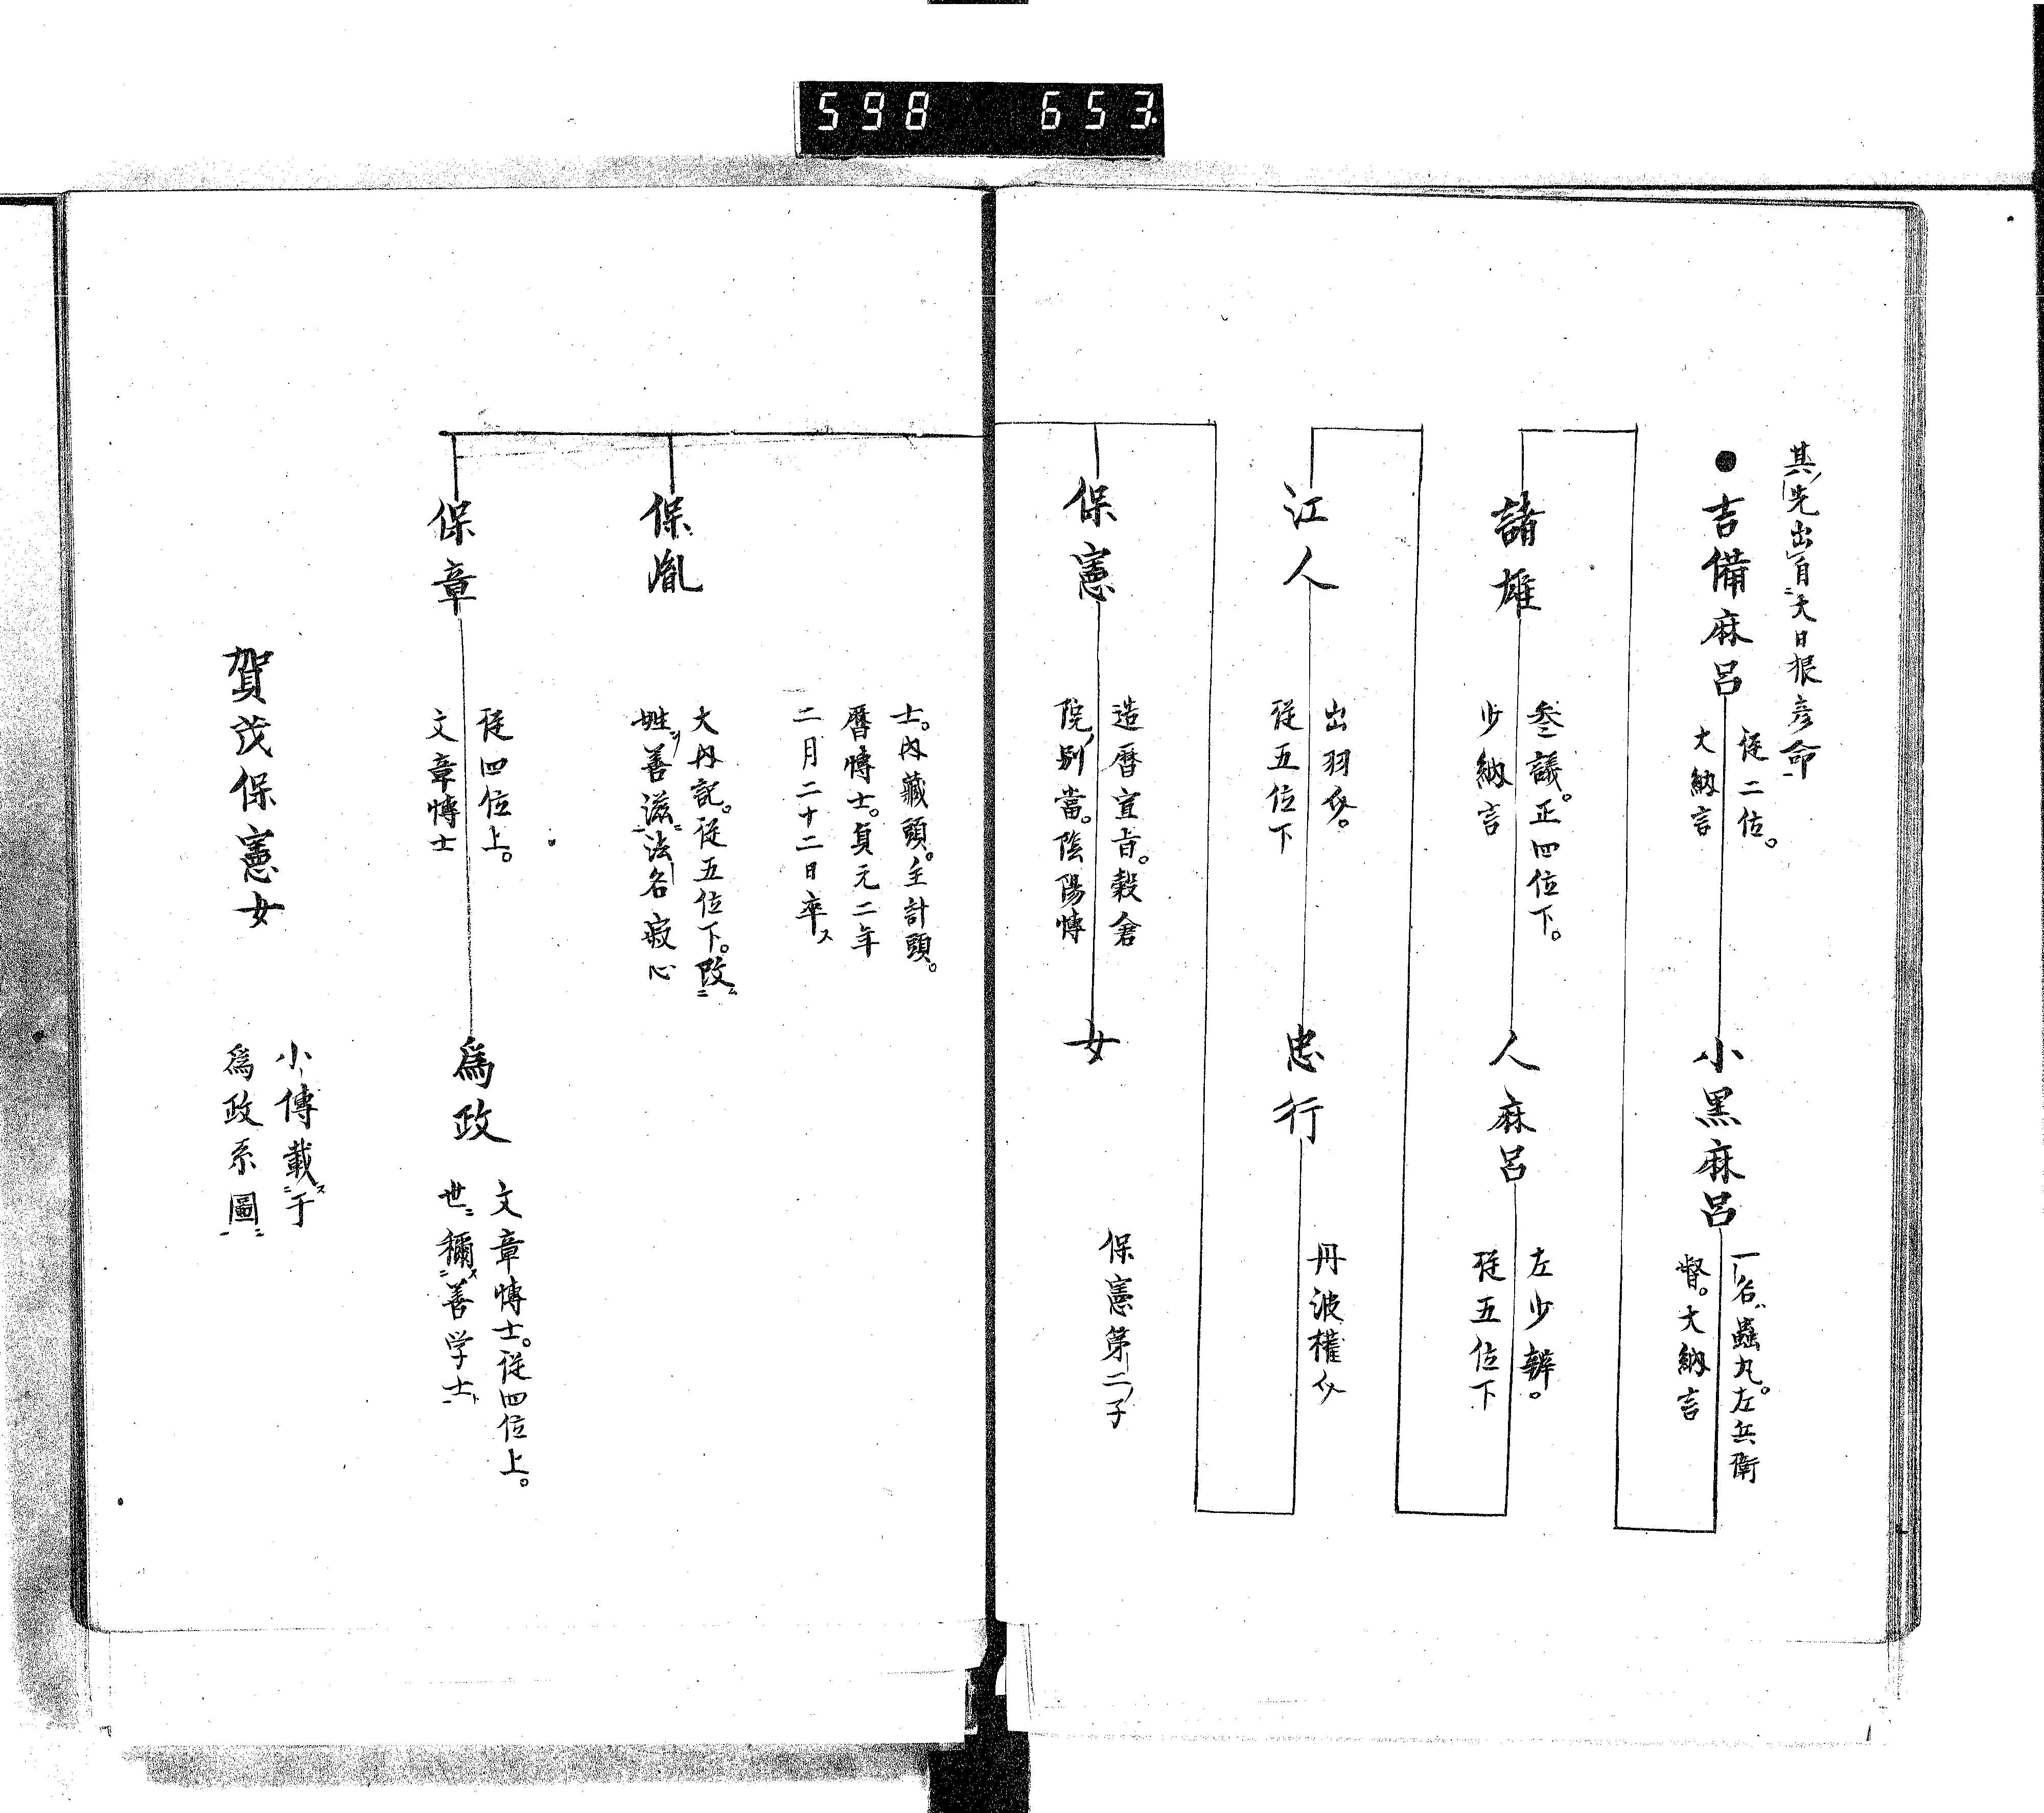 598 653
其先出自大日根彦命
吉備麻呂
従二位。
大納言
小黒麻呂
一名蟲丸。左兵衛
督。大納言
諸雄
叅議。正四位下。
少納言
人麻呂
左少辨。
従五位下
江人
出羽介。
従五位下
忠行
丹波權介
保憲
造暦宣旨。穀倉
院ノ別當。陰陽愽
女
保憲第二ノ子
士。内藏頭。主計頭。
暦愽士。貞元二年
二月二十二日卒ス
保胤
大内記。従五位下。改ム
姓ヲ善滋法名寂心
保章
従四位上。
文章愽士
為政
文章愽士。従四位上。
世ニ稱ス善学士ト
賀茂保憲女
小傳載ス于
為政系圖ニ